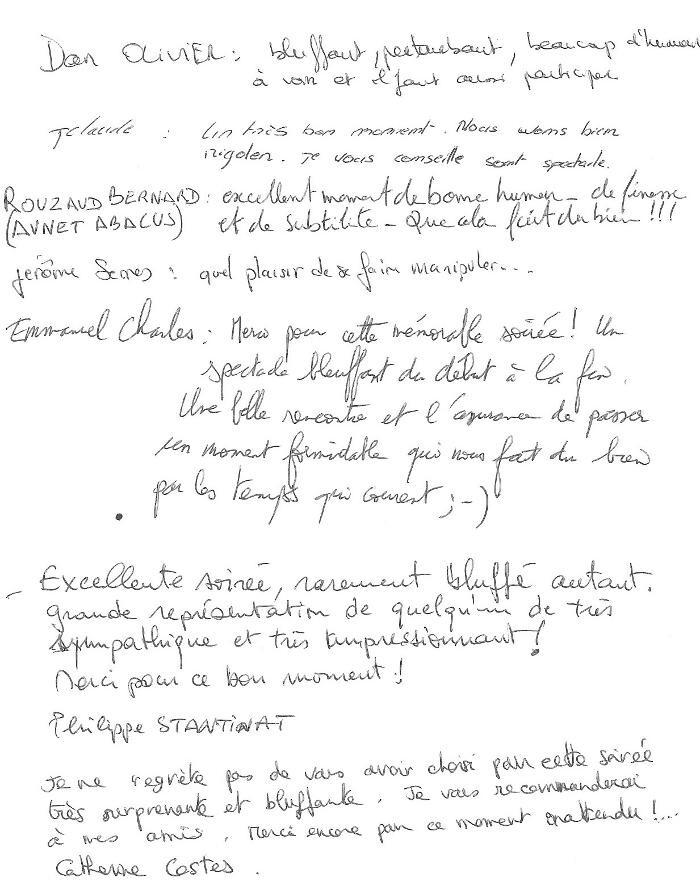 Dan OLIVIER : bluffant, perturbant, beaucap d'humour
à voir et il faut aussi participer
JClaude : Un très bon moment. Nous avons bien
rigoler. Je vous conseille sont spectacle.
ROUZAUD BERNARD : excellent moment de bonne humeur – de finesse
(AVNET ABACUS) et de subtilité – Que cela fait du bien !!!
Jérôme : quel plaisir de se faire manipuler....
Emmanuel Charles : Merci pour cette mémorable soirée ! Un
spectacle bleuffant du début à la fin.
Une belle rencontre et l'assurance de passer
un moment formidable qui nous fait du bien
par les temps qui courent ;-)
- Excellente soirée, rarement bluffé autant.
grande représentation de quelqu'un de très
sympathique et très impressionnant !
Merci pour ce bon moment !
Philippe STANTINAT
Je ne regrète pas de vous avoir choisi pour cette soirée
très surprenante et bluffante. Je vous recommanderai
à mes amis. Merci encore pour ce moment inattendu !...
Catherine Costes.